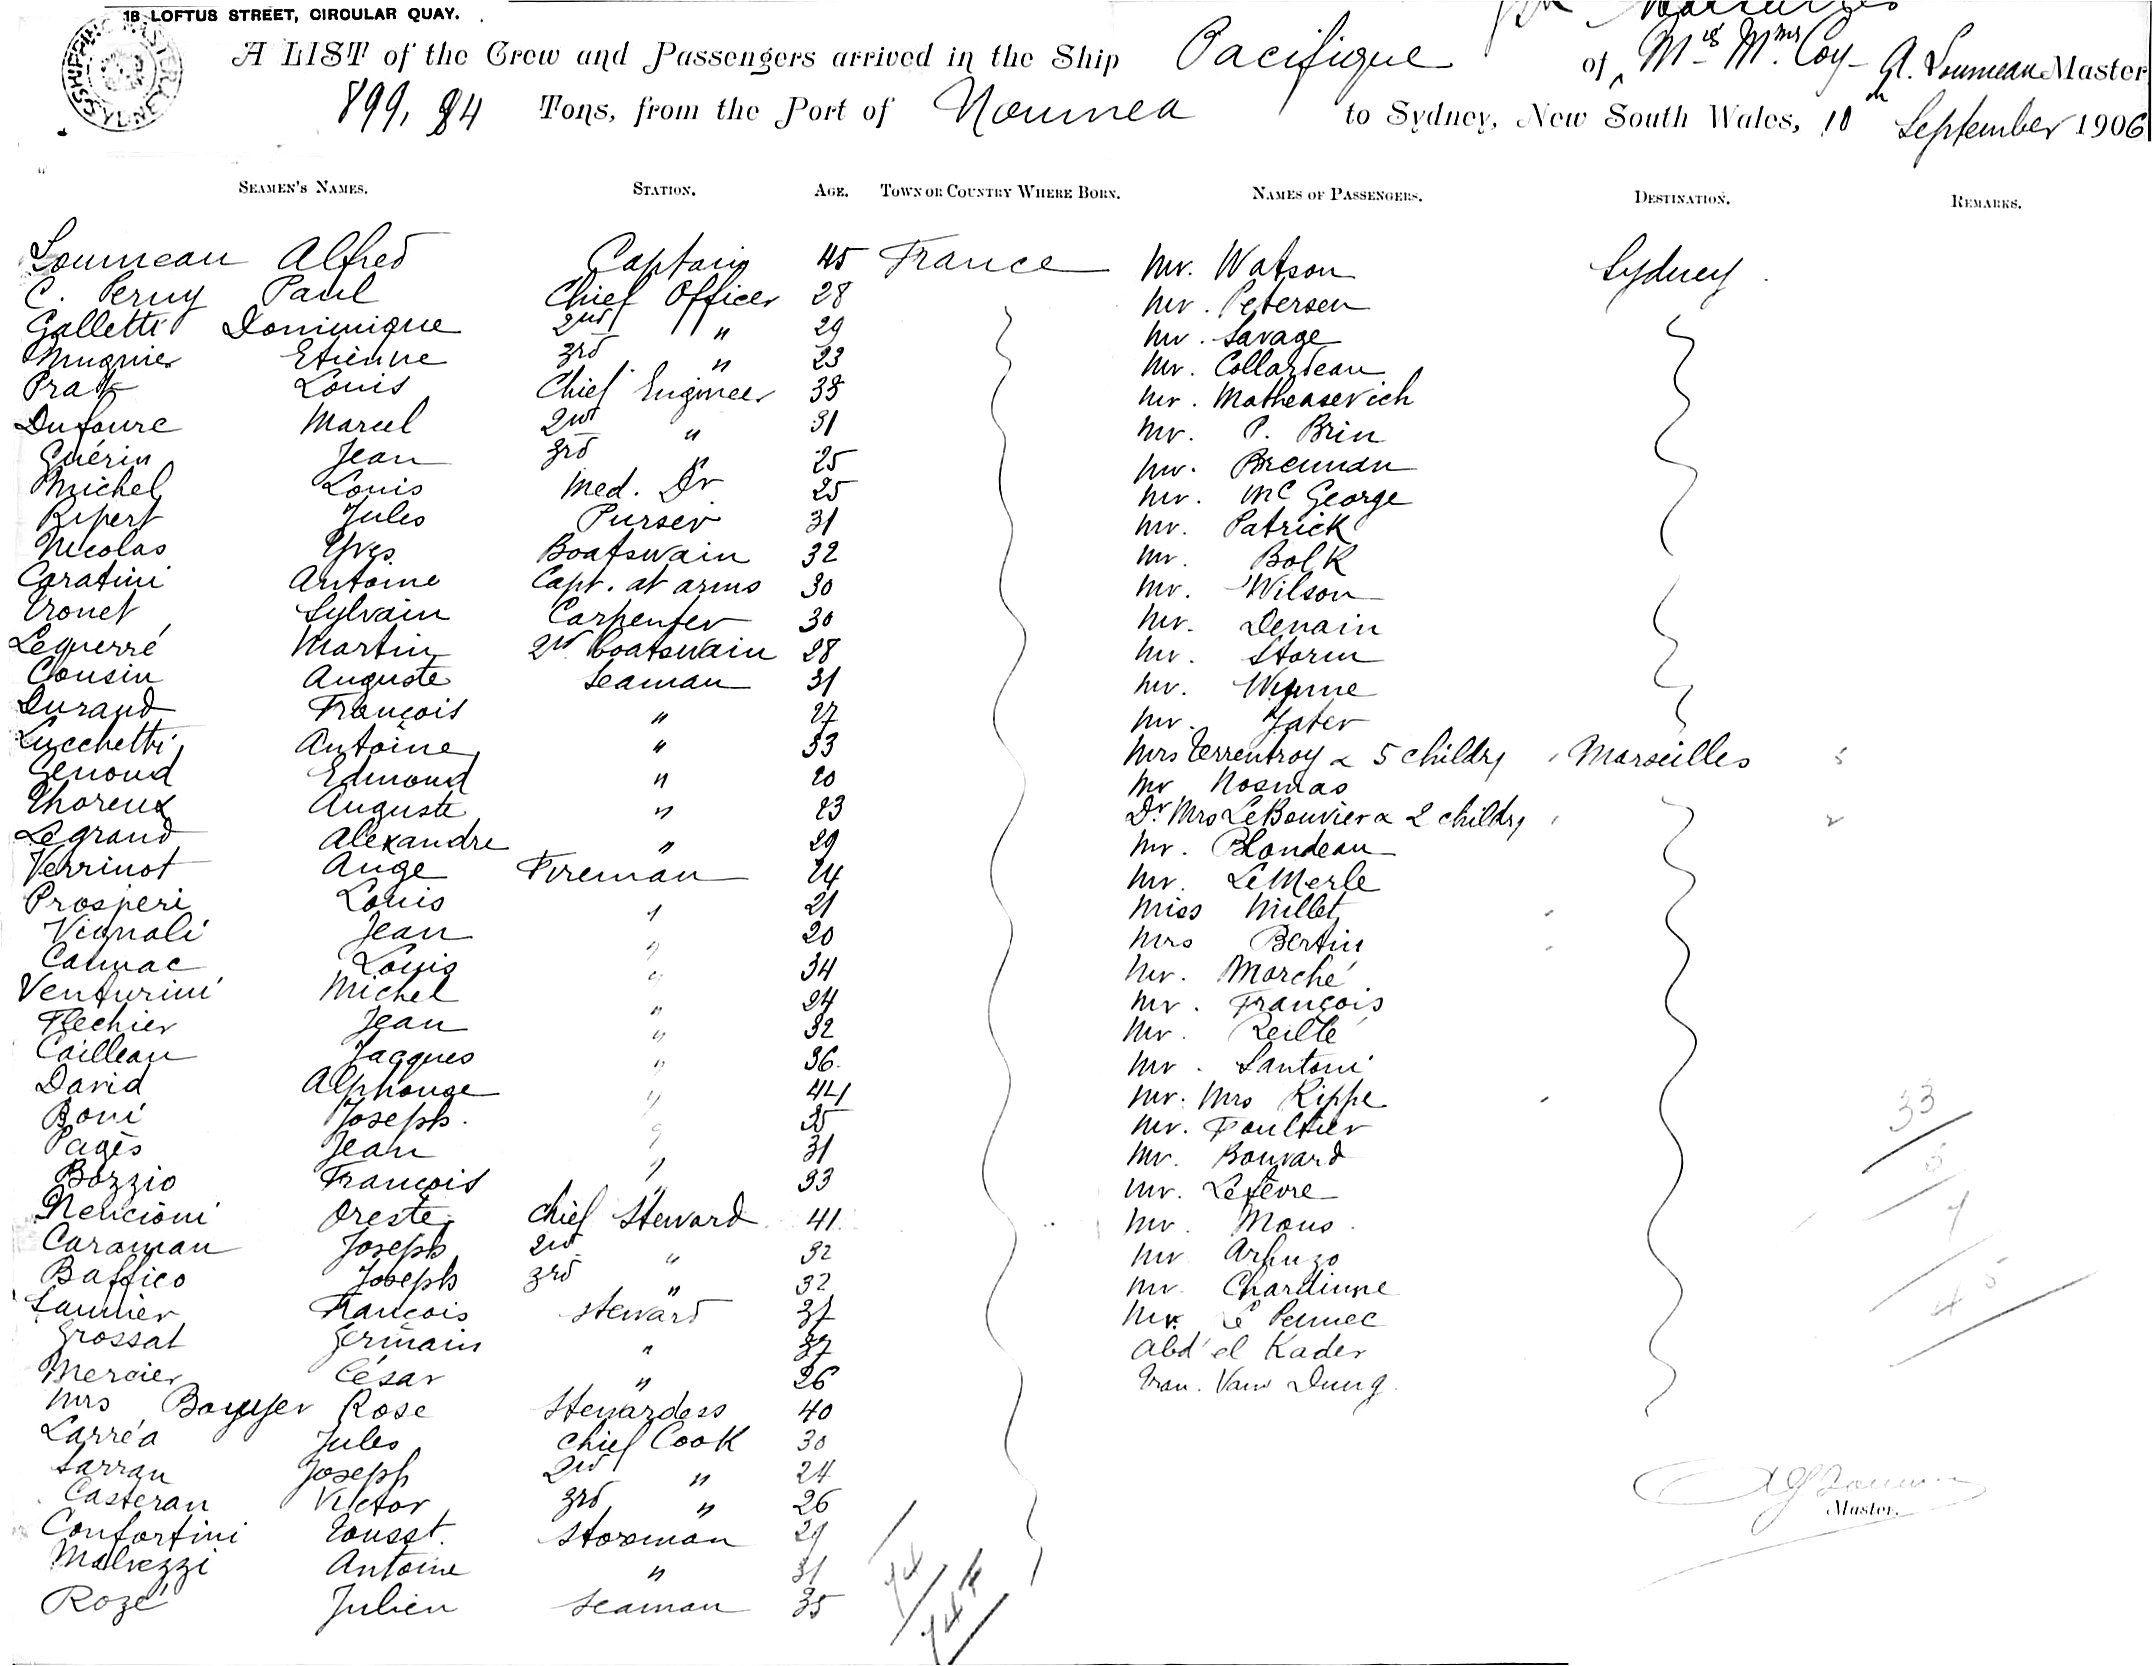 18 LOFTUS STREET, CIRCULAR QUAY.
SHIPPING MASTER SYDNEY
A LIST of the Crew and Passengers arrived in the Ship Pacifique of Mis Mmes Coy A. Loumeau Master
899,84 Tons, from the Port of Noumea to Sydney, New South Wales, 10th September 1906
SEAMEN'S NAMES. STATION. AGE. TOWN OR COUNTRY WHERE BORN. NAMES OF PASSENGERS. DESTINATION. REMARKS.
Loumeau Alfred Captain 45 France Mr. Watson Sydney
C. Peruy Paul Chief Officer 28 Mr. Petersen
Galletti Dominique 2nd " 29 Mr. Savage
Mugnier Etienne 3rd " 23 Mr. Collardeau
Prat Louis Chief Engineer 38 Mr. Matheasevich
Dufoure Marcel 2nd " 31 Mr. P. Brin
Guérin Jean 3rd " 25 Mr. Brennan
Michel Louis Med. Dr 25 Mr. Mc George
Ripert Jules Purser 31 Mr. Patrick
Nicolas Yves Boatswain 32 Mr. Bolk
Caratini Antoine Capt. at arms 30 Mr. Wilson
Tronet Sylvain Carpenter 30 Mr. Denain
Lequerré Martin 2nd boatswain 28 Mr. Storm
Cousin Auguste Seaman 31 Mr. Wynne
Durand François " 27 Mr. Jater
Lucchetti Antoine " 33 Mrs Terrentroy & 5 childrn Marseilles 5
Genoud Edmond " 20 Mr Nosmas
Thoreux Auguste " 23 Dr. Mrs LeBouvier & 2 childrn 2
Legrand Alexandre " 29 Mr. Blondeau
Verrinot Ange Fireman 24 Mr. LeMerle
Prosperi Louis " 21 Miss Millet
Vignali Jean " 20 Mrs Bertin
Calmac Louis " 34 Mr. Marché
Venturini Michel " 24 Mr. François
Flechier Jean " 32 Mr. Reillé
Cailleau Jacques " 36 Mr. Santoni
David Alphonse " 44 Mr. Mrs Rippe
Boni Joseph " 35 Mr. Poultier 33
Pagès Jean " 31 Mr. Bouvard
Bozzio François " 33 Mr. Lefèvre
Nencioni Oreste Chief Steward 41 Mr. Mons
Caraman Joseph 2nd " 32 Mr Arhuzo
Baffico Joseph 3rd " 32 Mr. Chardinne
Saunier François Steward 37 Mr. Le Pennec 45
Grossat Germain " 37 Abd' el Kader
Mercier César " 26 Tran. Van Dung
Mrs Bayuyer Rose Stewardess 40
Larréa Jules Chief Cook 30
Sarran Joseph 2nd " 24
Casteran Victor 3rd " 26 Master.
Confortini Tousst. Storeman 29
Malvezzi Antoine " 31
Rozé Julien Seaman 35